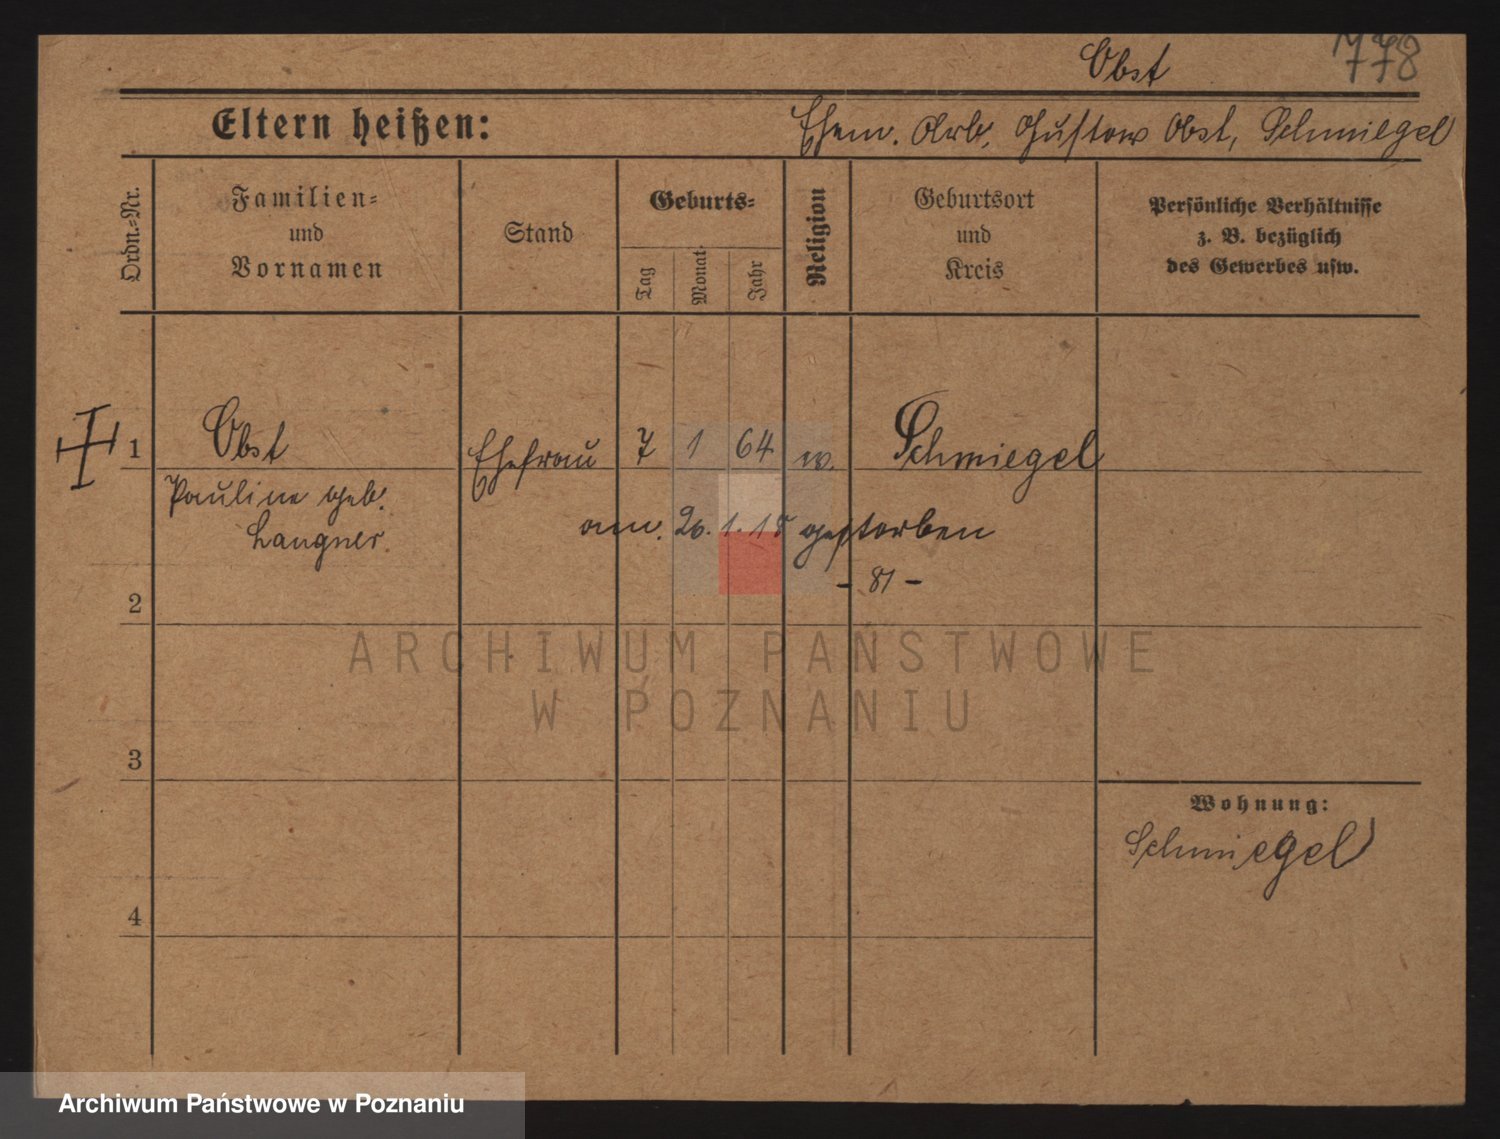 Obst 778
Eltern heißen: Ehem. Arb. Gustav Obst, Schmiegel
Ordn.-Nr.
Familien-
und
Vornamen
Stand
Geburts-
Tag
Monat
Jahr
Religion
Geburtsort
und
Kreis
Persönliche Verhältnisse
z. B. bezüglich
des Gewerbes usw.
1 Obst Ehefrau 7 1 64 w. Schmiegel
Pauline geb.
Langner.
am. 20. 1. 18 gestorben
- 81 -
2
ARCHIWUM PAŃSTWOWE
W POZNANIU
3
Wohnung:
Schmiegel
4
Archiwum Państwowe w Poznaniu